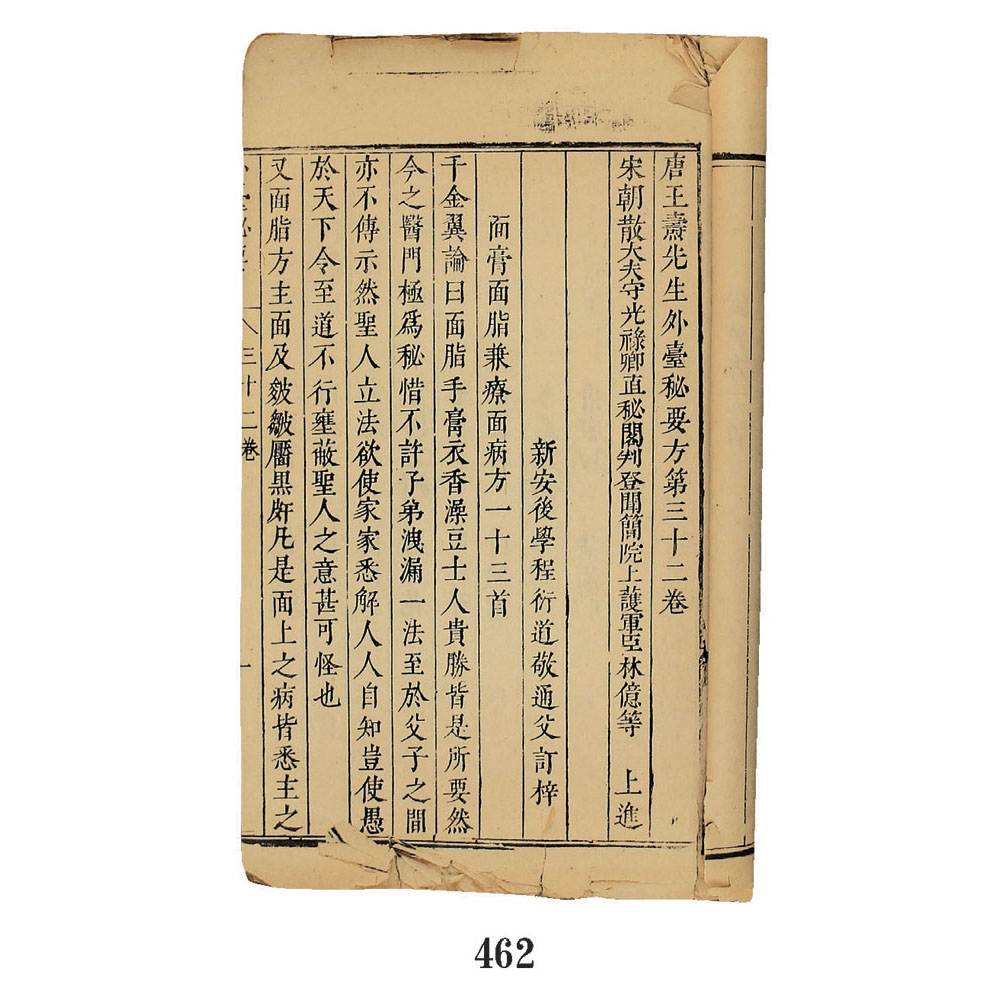 唐王燾先生外臺秘要方第三十二卷
宋朝散大夫守光祿卿直秘閣判登聞簡院上護軍臣林億等 上進
新安後學程衍道敬通父訂梓
面膏面脂兼療面病方一十三首
千金翼論曰面脂手膏衣香澡豆士人貴勝皆是所要然
今之醫門極爲秘惜不許子弟洩漏一法至於父子之間
亦不傳示然聖人立法欲使家家悉解人人自知豈使愚
於天下令至道不行壅蔽聖人之意甚可怪也
又面脂方主面及皴皺黶黑䵟凡是面上之病皆悉主之
三十二卷 一
462